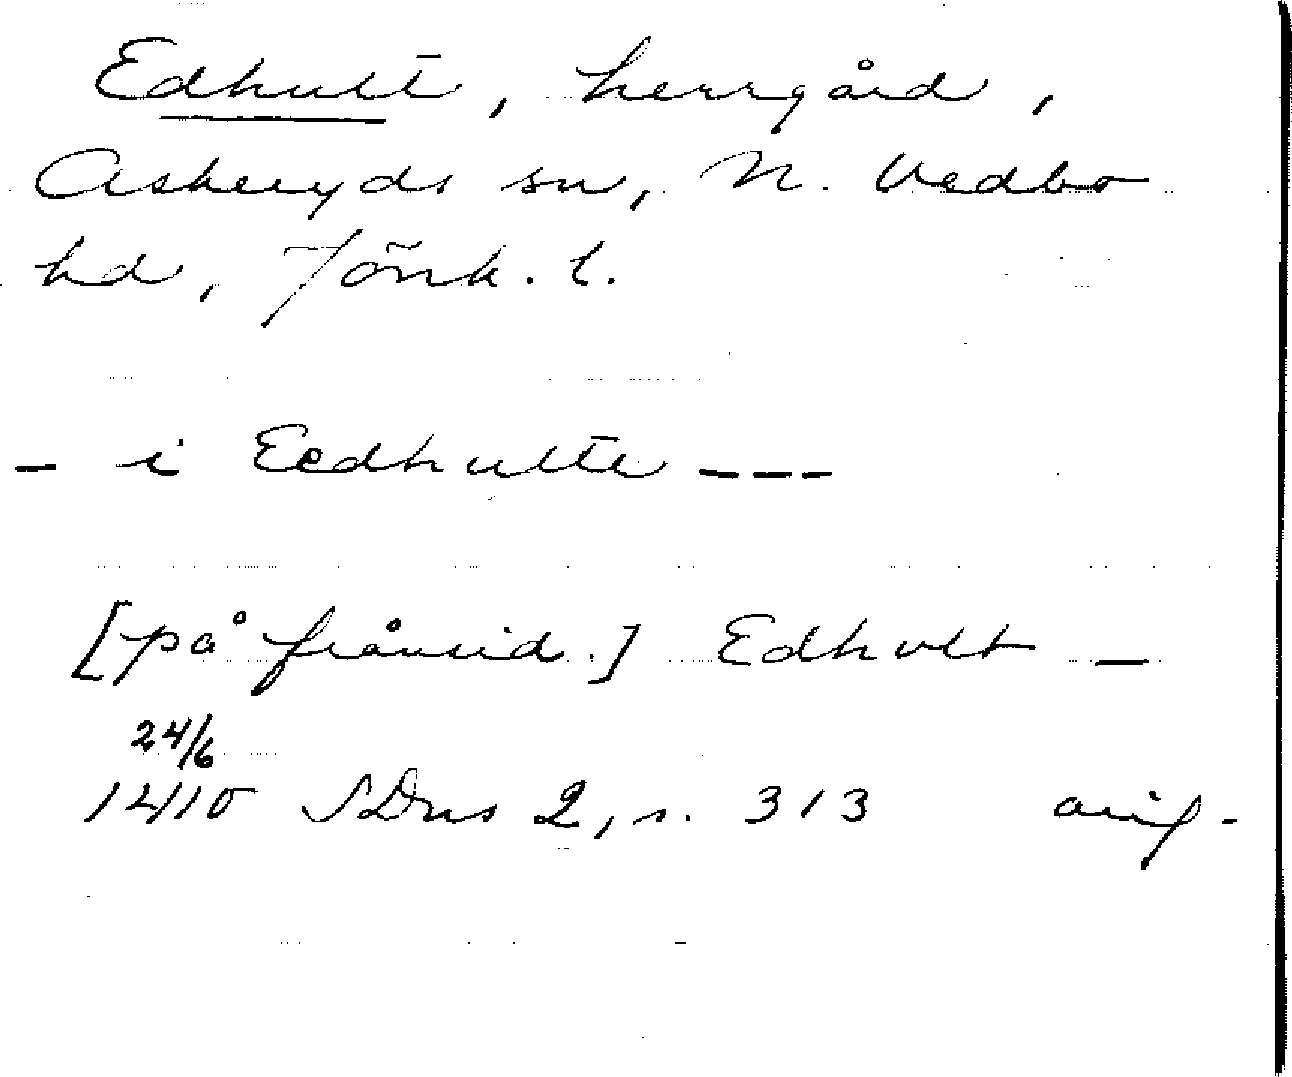 Edhult, herrgård,
Askeryds sn, N. Vedbo
hd, Jönk. l.
- i Eedhulte ---
[på frånsid.] Edhult -
24/6
1410 SDns 2, s. 313 avif.